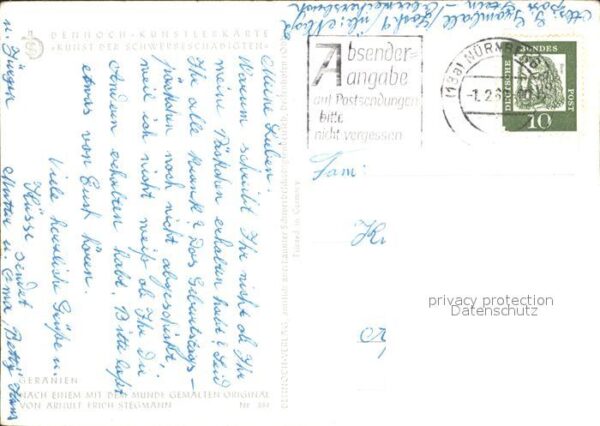 DENHOCH-KÜNSTLERKARTE
«KUNST DER SCHWERBESCHÄDIGTEN»
Absender=
angabe
auf Postsendungen
bitte
nicht vergessen
NÜRNBERG
-1.2.6
DEUTSCHE BUNDESPOST
10
Meine Lieben!
Warum schreibt Ihr nicht ob Ihr
meine Päckchen erhalten habt? Seid
Ihr alle krank? Das Geburtstags-
päckchen noch nicht abgeschickt,
weil ich nicht weiß ob Ihr die
Andern erhalten habt. Bitte laßt
etwas von Euch hören.
Viele herzlich Grüße u.
Küsse sendet
Mutter u. Oma, Betty, Hans
u. Jürgen
Fam:
privacy protection
Datenschutz
Printed in Germany
GERANIEN
NACH EINEM MIT DEM MUNDE GEMALTEN ORIGINAL
VON ARNULF ERICH STEGMANN